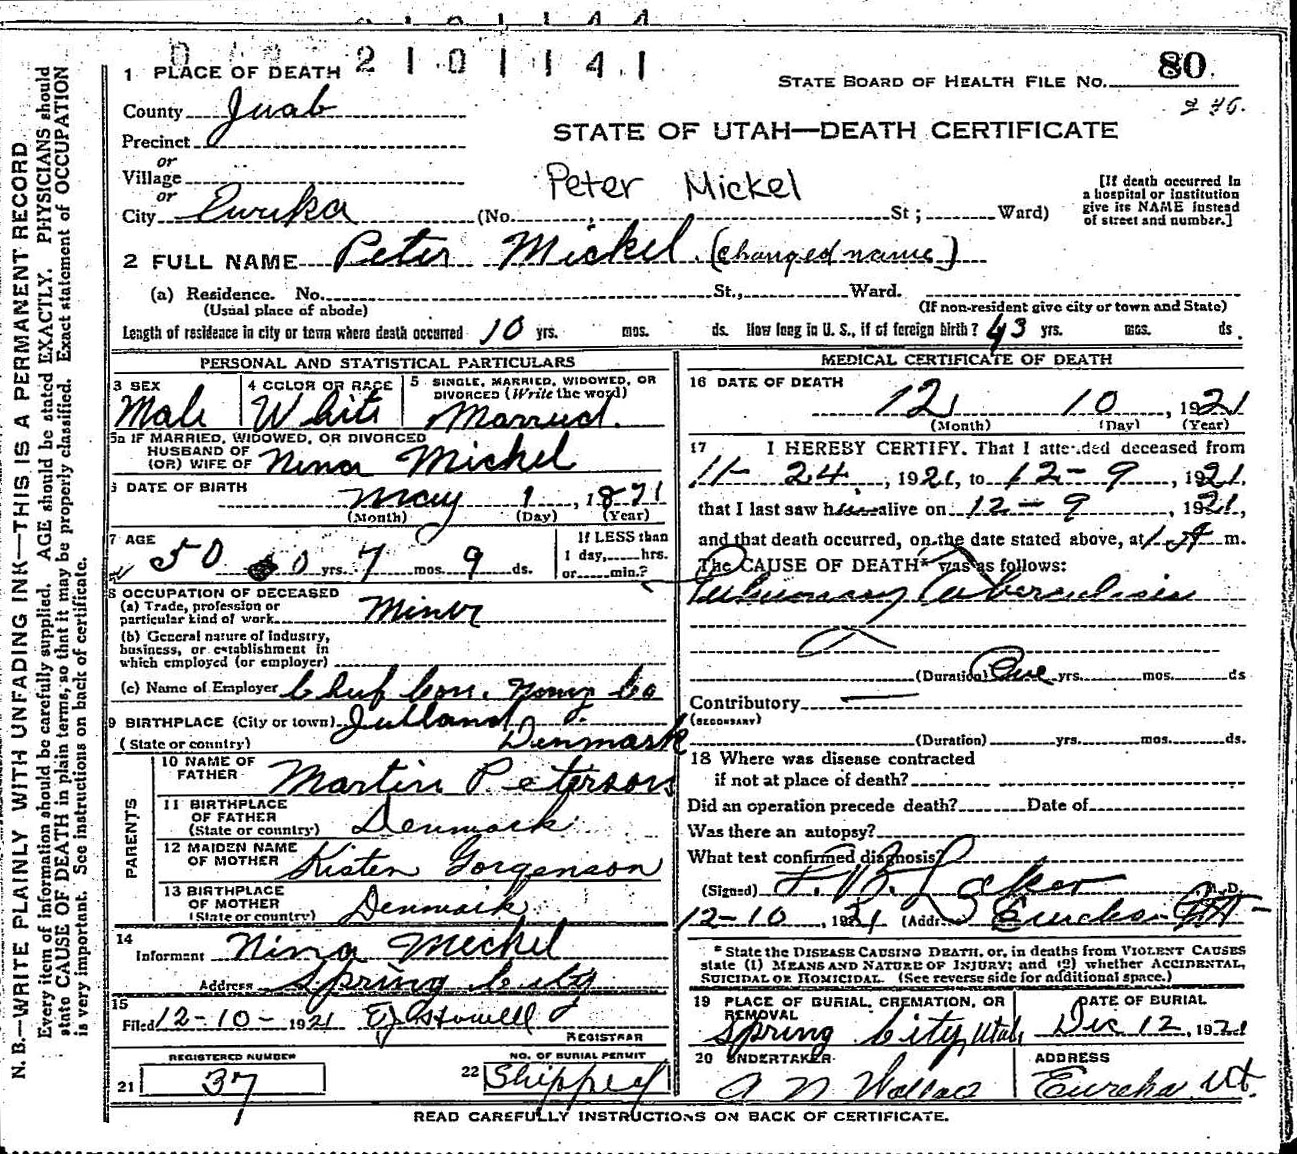 2101141
1 PLACE OF DEATH
STATE BOARD OF HEALTH FILE NO. 80
County Juab
236.
Precinct
STATE OF UTAH—DEATH CERTIFICATE
or
Village
Peter Mickel
or
City Eureka (No. St; Ward)
[If death occurred in
a hospital or institution
give its NAME instead
of street and number.]
2 FULL NAME Peter Mickel (changed name)
(a) Residence. No. St., Ward.
(Usual place of abode) (If non-resident give city or town and State)
Length of residence in city or town where death occurred 10 yrs. mos. ds. How long in U. S., if of foreign birth? 43 yrs. mos. ds.
PERSONAL AND STATISTICAL PARTICULARS
3 SEX
Male
4 COLOR OR RACE
White
5 SINGLE, MARRIED, WIDOWED, OR
DIVORCED (Write the word)
Married.
5a IF MARRIED, WIDOWED, OR DIVORCED
HUSBAND OF
(OR) WIFE OF Nina Mickel
6 DATE OF BIRTH
May 1, 1871
(Month) (Day) (Year)
7 AGE
50 0 yrs. 7 mos. 9 ds.
If LESS than
1 day,.....hrs.
or.....min.?
8 OCCUPATION OF DECEASED
(a) Trade, profession or
particular kind of work Miner
(b) General nature of Industry,
business, or establishment in
which employed (or employer)
(c) Name of Employer Chief Con. Mng Co
9 BIRTHPLACE (City or town) Jutland
(State or country) Denmark
PARENTS
10 NAME OF
FATHER Martin Peterson
11 BIRTHPLACE
OF FATHER
(State or country) Denmark
12 MAIDEN NAME
OF MOTHER Kisten Gorgenson
13 BIRTHPLACE
OF MOTHER
(State or country) Denmark
14
Informant Nina Mickel
Address Spring City
15
Filed 12-10-1921 EJ Howell
REGISTRAR
REGISTERED NUMBER
21 37
NO. OF BURIAL PERMIT
22 Shipped
MEDICAL CERTIFICATE OF DEATH
16 DATE OF DEATH
12 10, 1921
(Month) (Day) (Year)
17 I HEREBY CERTIFY. That I attended deceased from
11-24, 1921, to 12-9, 1921.
that I last saw him alive on 12-9, 1921,
and that death occurred, on the date stated above, at 1 A m.
The CAUSE OF DEATH* was as follows:
Pulmonary Tuberculosis
(Duration) One yrs. mos. ds
Contributory —
(SECONDARY)
(Duration) yrs. mos. ds.
18 Where was disease contracted
if not at place of death?
Did an operation precede death? Date of
Was there an autopsy?
What test confirmed diagnosis?
(Signed) M. D.
12-10, 1921 (Address) Eureka Ut-
* State the DISEASE CAUSING DEATH, or, in deaths from VIOLENT CAUSES
state (1) MEANS AND NATURE OF INJURY; and (2) whether ACCIDENTAL,
SUICIDAL OR HOMICIDAL. (See reverse side for additional space.)
19 PLACE OF BURIAL, CREMATION, OR
REMOVAL
Spring City, Utah
DATE OF BURIAL
Dec 12, 1921
20 UNDERTAKER
A N Wallace
ADDRESS
Eureka Ut.
READ CAREFULLY INSTRUCTIONS ON BACK OF CERTIFICATE.
N. B.—WRITE PLAINLY WITH UNFADING INK—THIS IS A PERMANENT RECORD.
Every item of information should be carefully supplied. AGE should be stated EXACTLY. PHYSICIANS should
state CAUSE OF DEATH in plain terms, so that it may be properly classified. Exact statement of OCCUPATION
is very important. See instructions on back of certificate.